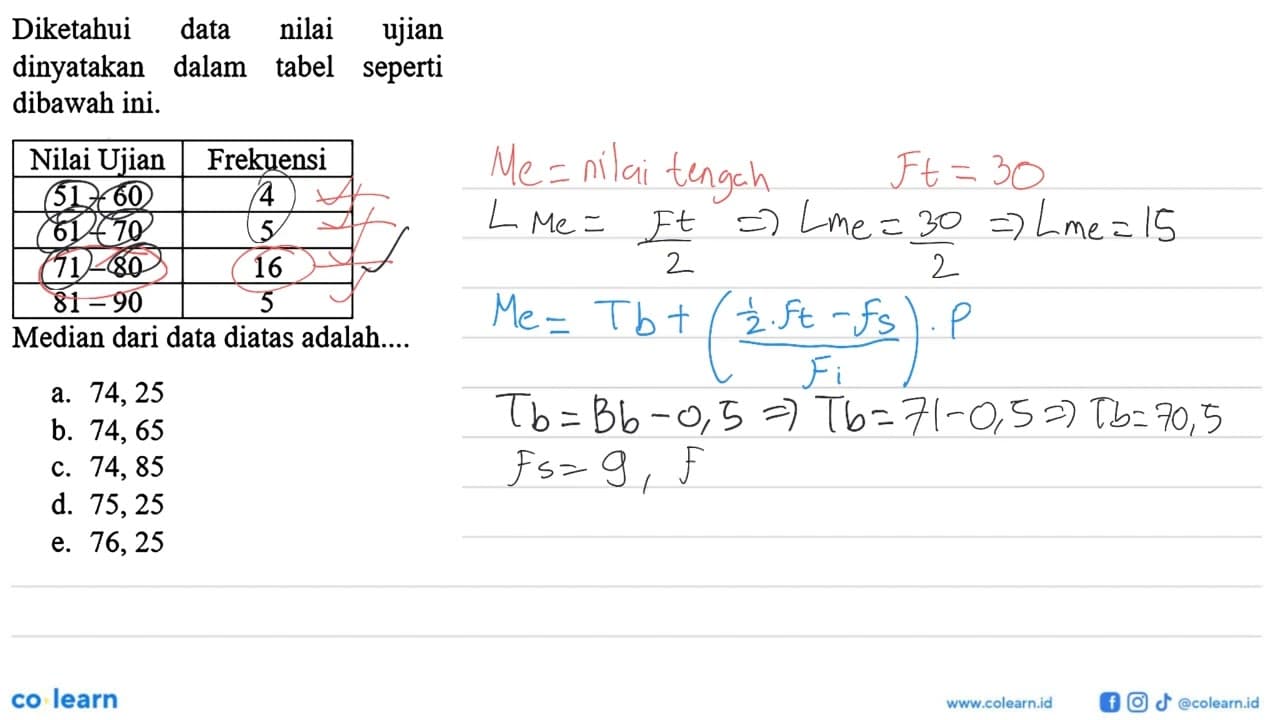 Diketahui data nilai ujian
dinyatakan dalam tabel seperti
dibawah ini.
Nilai Ujian Frekuensi
51 – 60 4
61 – 70 5
71 – 80 16
81 – 90 5
Median dari data diatas adalah....
a. 74, 25
b. 74, 65
c. 74, 85
d. 75, 25
e. 76, 25
Me = nilai tengah Ft = 30
L Me = Ft/2 => Lme = 30/2 => Lme = 15
Me = Tb + (½.Ft - Fs / Fi) . P
Tb = Bb - 0,5 => Tb = 71 - 0,5 => Tb = 70,5
Fs = 9, F
co learn
www.colearn.id @colearn.id